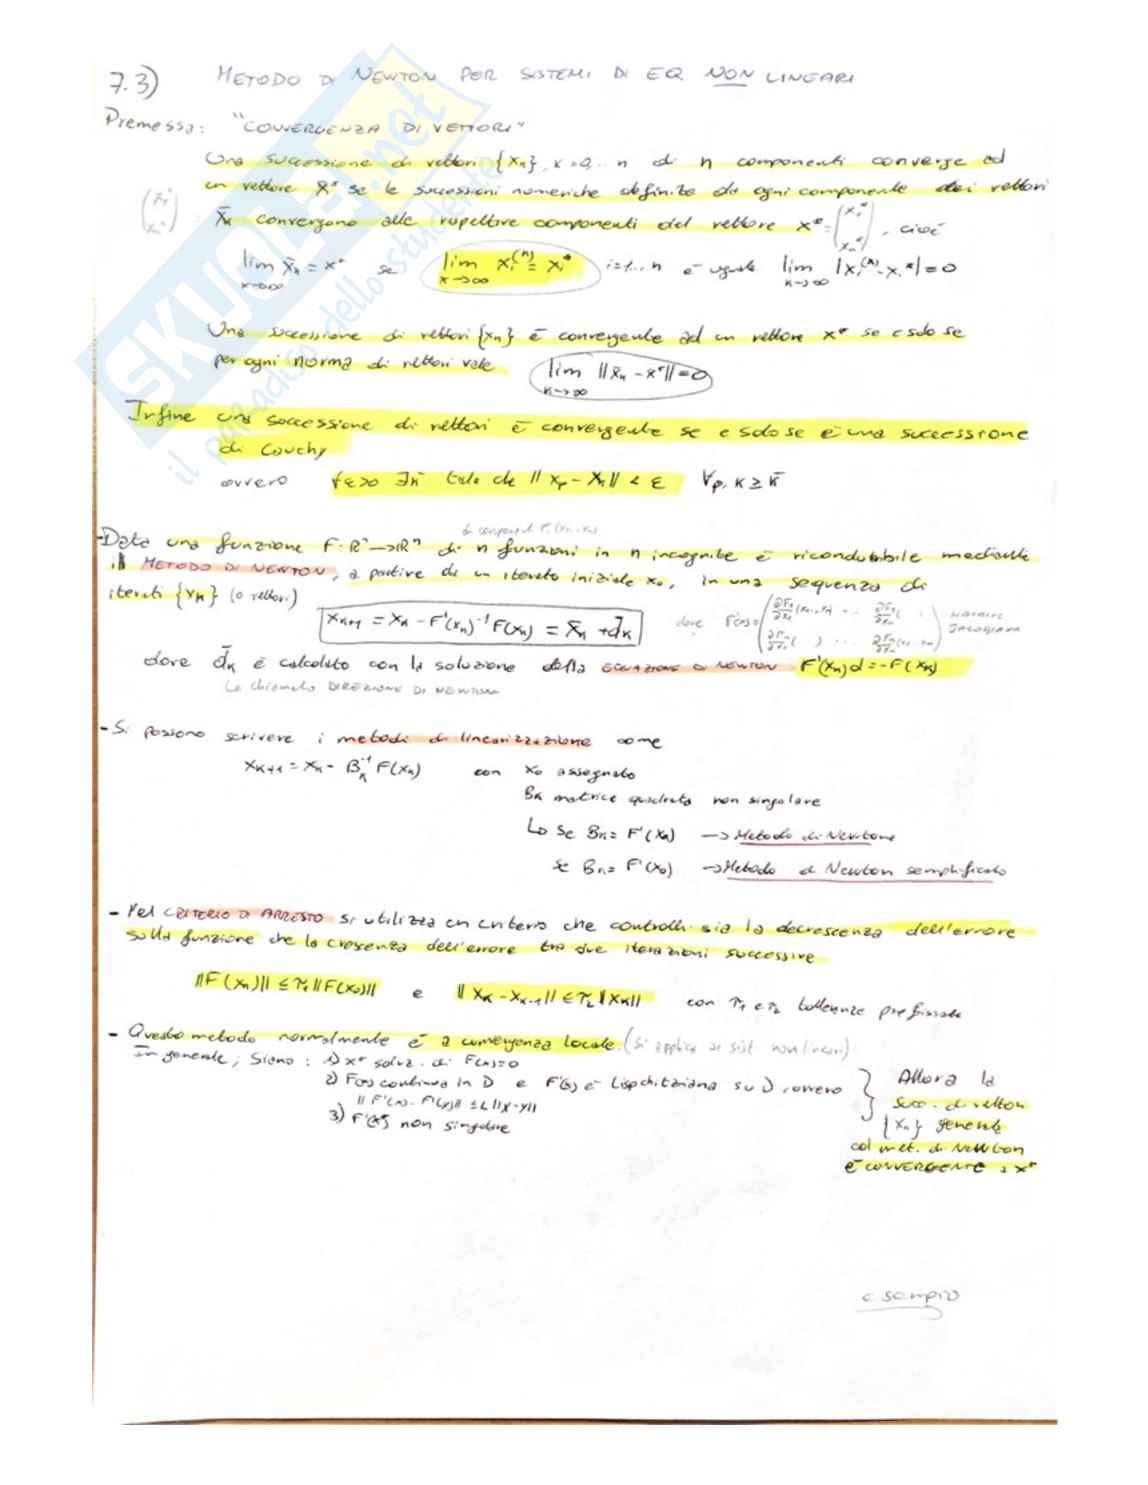 7.3) METODO DI NEWTON PER SISTEMI DI EQ NON LINEARI
Premessa: "CONVERGENZA DI VETTORI"
Una successione di vettori {x_k}, k=0...n di n componenti converge ad
un vettore x* se le successioni numeriche definite da ogni componente dei vettori
x̄_k convergono alle rispettive componenti del vettore x* = (x₁* ... x_n*), cioè
lim x̄_k = x* se lim x_i^(k) = x_i* i=1...n è uguale lim |x_i^(k) - x_i*| = 0
k→∞ x→∞ k→∞
Una successione di vettori {x_k} è convergente ad un vettore x* se e solo se
per ogni norma di vettori vale lim ||x̄_k - x*|| = 0
k→∞
Infine una successione di vettori è convergente se e solo se è una successione
di Couchy
ovvero ∀ε>0 ∃k̄ tale che ||x_p - x_k|| < ε ∀p, k ≥ k̄
di componenti F_i(x_1...x_n)
- Data una funzione F: Rⁿ→Rⁿ di n funzioni in n incognite è riconducibile mediante
il METODO DI NEWTON, a partire da un iterato iniziale x₀, in una sequenza di
iterati {x_k} (o vettori)
x_{k+1} = x_k - F'(x_k)⁻¹ F(x_k) = x̄_k + d̄_k dove F'(x) = MATRICE JACOBIANA
dove d̄_k è calcolato con la soluzione della EQUAZIONE DI NEWTON F'(x_k)d = -F(x_k)
Lo chiamato DIREZIONE DI NEWTON
- Si possono scrivere i metodi di linearizzazione come
x_{k+1} = x_k - B_k⁻¹ F(x_k) con x₀ assegnato
B_k matrice quadrata non singolare
↳ se B_k = F'(x_k) → Metodo di Newton
se B_k = F'(x₀) → Metodo di Newton semplificato
- Nel CRITERIO DI ARRESTO si utilizza un criterio che controlli sia la decrescenza dell'errore
sulla funzione che la crescenza dell'errore tra due iterazioni successive
||F(x_k)|| ≤ τ₁||F(x₀)|| e ||x_k - x_{k-1}|| ≤ τ₂||x_k|| con τ₁ e τ₂ tolleranze prefissate
- Questo metodo normalmente è a convergenza locale. (si applica ai sist. non lineari)
In generale, Siano: 1) x* soluz. di F(x)=0
2) F(x) continua in D e F'(x) è Lispchitziana su D, ovvero
||F'(x) - F'(y)|| ≤ L||x-y||
3) F'(x*) non singolare
Allora la
succ. di vettori
{x_k} generata
col met. di Newton
è CONVERGENTE a x*
esempio
SKUOLA.net
il paradiso dello studente